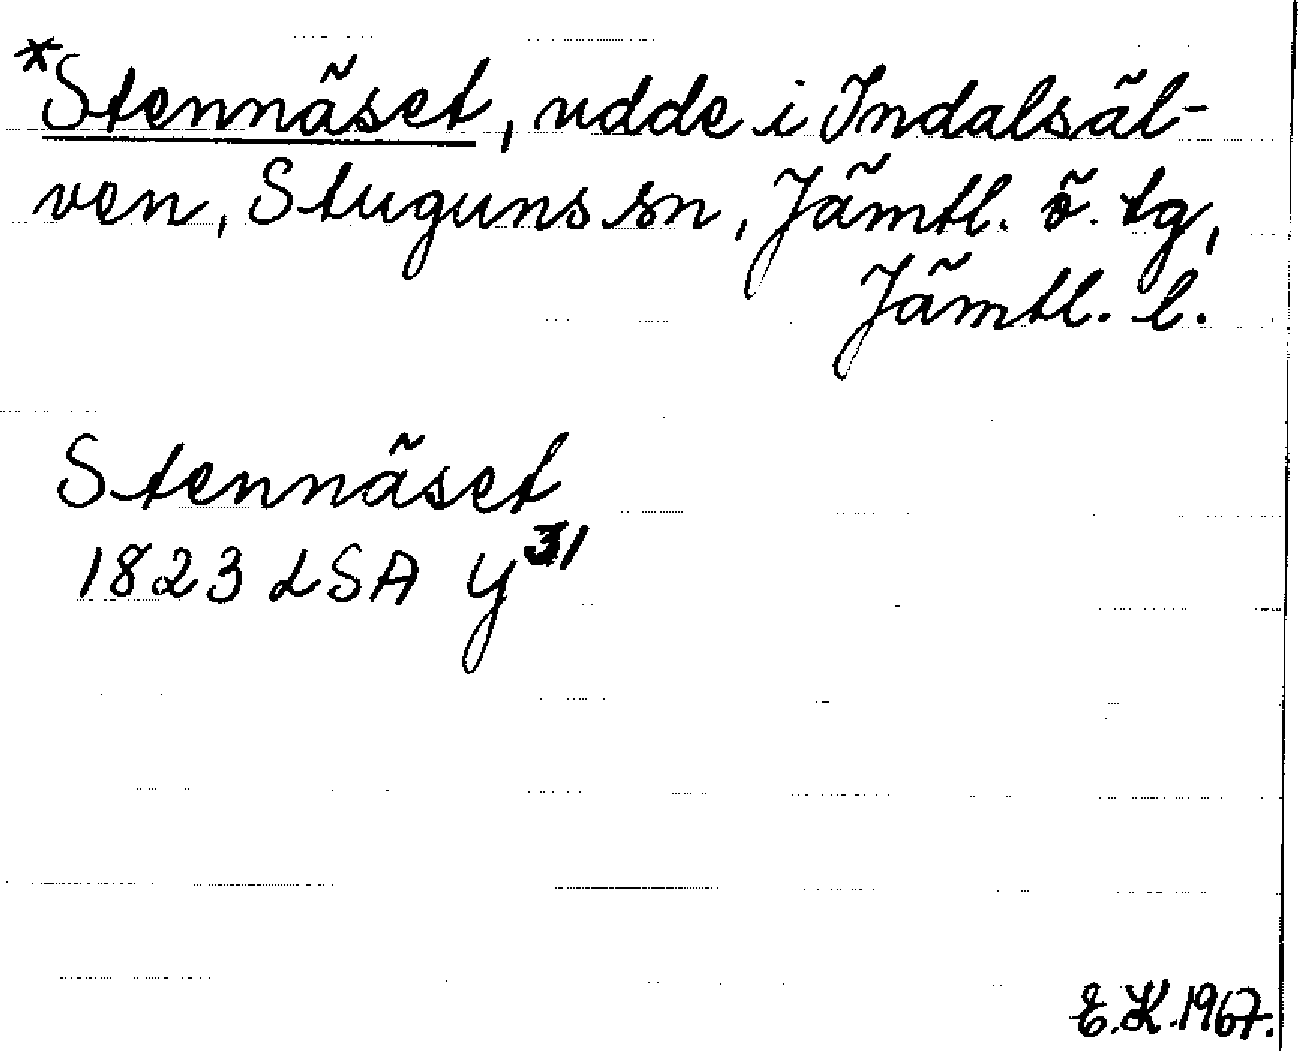 *Stennäset, udde i Indalsäl-
ven, Stuguns sn, Jämtl. ö. tg,
Jämtl. l.
Stennäset
1823 LSA Y³¹
E.K. 1967.